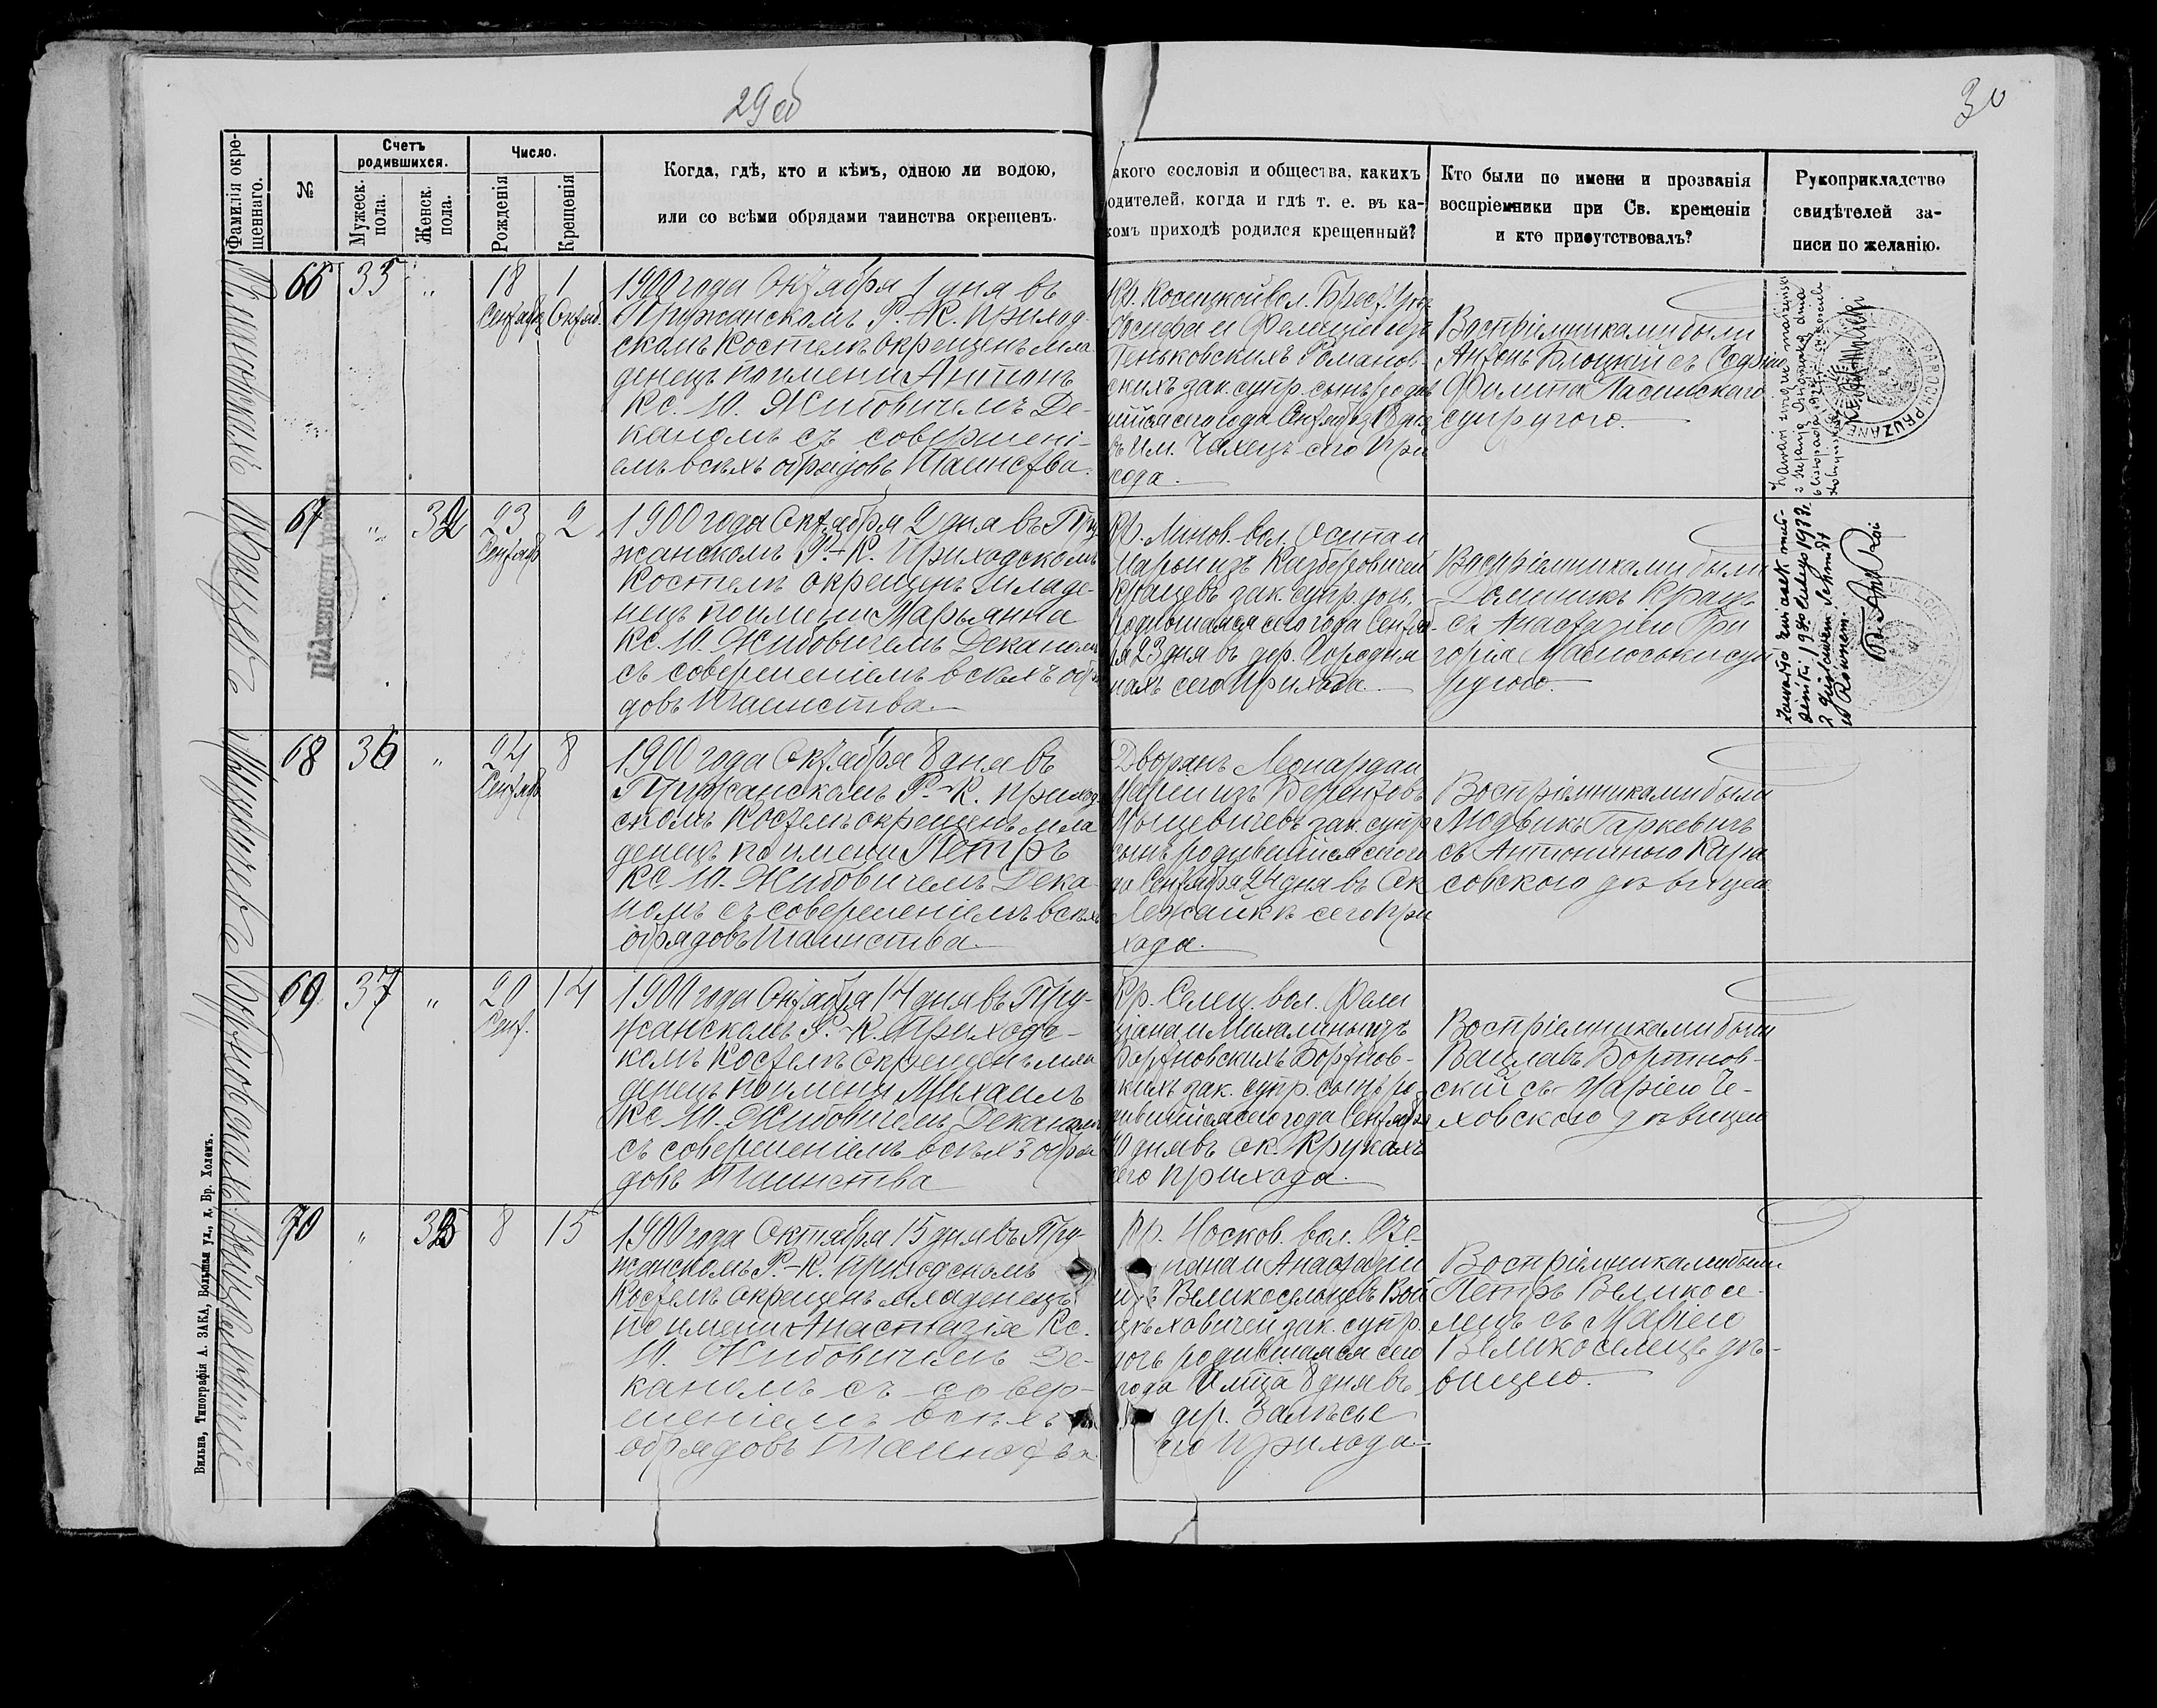 29 об
30
Фамилія окре-
щеннаго.
№
Счетъ
родившихся.
Мужеск.
пола.
Женск.
пола.
Число.
Рожденія
Крещенія
Когда, гдѣ, кто и кѣмъ, одною ли водою,
или со всѣми обрядами таинства окрещенъ.
акого сословія и общества, какихъ
одителей, когда и гдѣ т. е. въ ка-
комъ приходѣ родился крещенный?
Кто были по имени и прозванія
воспріемники при Св. крещеніи
и кто присутствовалъ?
Рукоприкладство
свидѣтелей за-
писи по желанію.
66
35
"
18
Сентября
1
Октяб.
1900 года Октября 1 дня въ
Пружанскомъ Р.-К. приход-
скомъ Костелѣ окрещенъ мла-
денецъ по имени Антонъ
Кс. Ю. Жибовичемъ Де-
каномъ съ совершені-
емъ всѣхъ обрядовъ Таинства.
Кр. Косицкой вол. Брест. у.
Іосифа и Фелиціи изъ
Геньковскихъ Романов-
скихъ зак. супр. сынъ родив
шійся сего года Сентября 18 дня
въ им. Чахецъ сего При
хода.
Воспріемниками были
Антонъ Блоцкій съ Софіею
Филипа Ласинского
супругою.
PRUZANE
67
"
32
23
Сентяб
2
1900 года Октября 2 дня въ Пру
жанскомъ Р.-К. Приходскомъ
Костелѣ окрещенъ младе-
нецъ по имени Марьянна
Кс. Ю. Жибовичемъ Деканомъ
съ совершеніемъ всѣхъ обря
довъ Таинства.
Кр. Линов. вол. Осипа и
Маріи изъ Казберовичей
Крацевъ зак. супр. дочь
родившаяся сего года Сентяб-
ря 23 дня въ дер. Городня
нахъ сего Прихода.
Воспріемниками были
Доминикъ Крацъ
съ Анастазіею Гри
горія
68
36
"
24
Сентяб
8
1900 года Октября 8 дня въ
Пружанскомъ Р.-К. приход-
скомъ Костелѣ окрещенъ мла
денецъ по имени Петръ
Кс. Ю. Жибовичемъ Дека-
номъ съ совершеніемъ всѣхъ
обрядовъ Таинства.
Дворянъ Леонарда и
Маріи изъ
зак. супр
сынъ родившійся сего го
да Сентября 24 дня въ Ок
сего При
хода.
Воспріемниками были
Людвикъ Гаркевичъ
съ Антониною Кара
совскою дѣвицею
69
37
"
20
Сент.
14
1900 года Октября 14 дня въ Пру-
жанскомъ Р.-К. Приходс-
комъ Костелѣ окрещенъ мла
денецъ по имени Михаилъ
Кс. Ю. Жибовичемъ Деканомъ
съ совершеніемъ всѣхъ обря
довъ Таинства
Кр. Селец. вол. Фели
ціана и Михалины изъ
Бортновскихъ Бортнов-
скихъ зак. супр. сынъ ро-
дившійся сего года Сентября
20 дня въ ок. Крукахъ
сего прихода.
Воспріемниками были
Вацлавъ Бортнов-
скій съ Маріею Че-
ховскою дѣвицею
70
"
33
8
15
1900 года Октября 15 дня въ Пру-
жанскомъ Р.-К. Приходскомъ
Костелѣ окрещенъ младенецъ
по имени Анастазія Кс.
Ю. Жибовичемъ Де-
каномъ съ совер-
шеніемъ всѣхъ
обрядовъ Таинства
Кр. Носков. вол. Сте-
пана и Анастазіи
изъ Великоселецевъ Вой
цѣховичей зак. супр.
дочь родившаяся сего
года 8 дня въ
дер. Залѣсье
сего Прихода.
Воспріемниками были
Петръ Великосе-
лецъ съ Маріею
Великоселецъ дѣ-
вицею.
Вильна, Типографія А. ЗАКА, Большая ул., д. Бр. Холемъ.